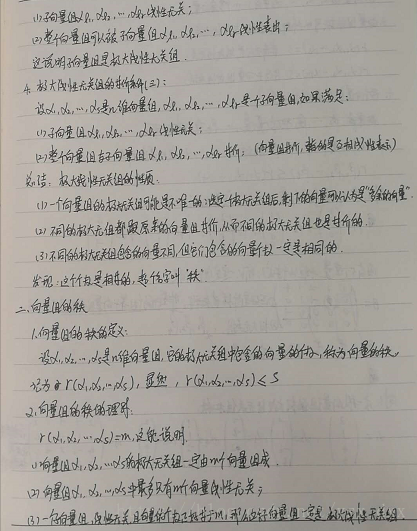 (1)子向量组αl₁,αl₂,…,αlr线性无关;
(2)整个向量组可以被子向量组αl₁,αl₂,…,αlr线性表出;
这说明子向量组是极大线性无关组.
4. 极大线性无关组的等价条件(三):
设α₁,α₂,…,αs是n维向量组,αl₁,αl₂,…,αlr是一个子向量组,如果满足:
(1)子向量组αl₁,αl₂,…,αlr线性无关;
(2)整个向量组与子向量组αl₁,αl₂,…,αlr等价;(向量组等价,指的是可互相线性表示)
总结:极大线性无关组的性质:
(1)一个向量组的极大无关组可能是不唯一的:选定一个极大无关组后,剩下的向量可以认为是"多余的向量".
(2)不同的极大无关组都跟原来的向量组等价,从而不同的极大无关组也是等价的.
(3)不同的极大无关组包含的向量不同,但它们包含的向量个数一定是相同的.
发现:这个个数是相等的,起个名字叫"秩"
二.向量组的秩
1.向量组的秩的定义:
设α₁,α₂,…,αs是n维向量组,它的极大无关组中包含的向量的个数,称为向量的秩,
记为 r(α₁,α₂,…,αs),显然,r(α₁,α₂,…,αs)≤S
2.向量组的秩的理解:
r(α₁,α₂,…,αs)=m,这能说明.
(1)向量组α₁,α₂,…,αs的极大无关组一定由m个向量组成.
(2)向量组α₁,α₂,…,αs中最多只有m个向量线性无关;
(3)一个子向量组,线性无关且向量个数正好等于m,那么这个子向量组一定是极大线性无关组